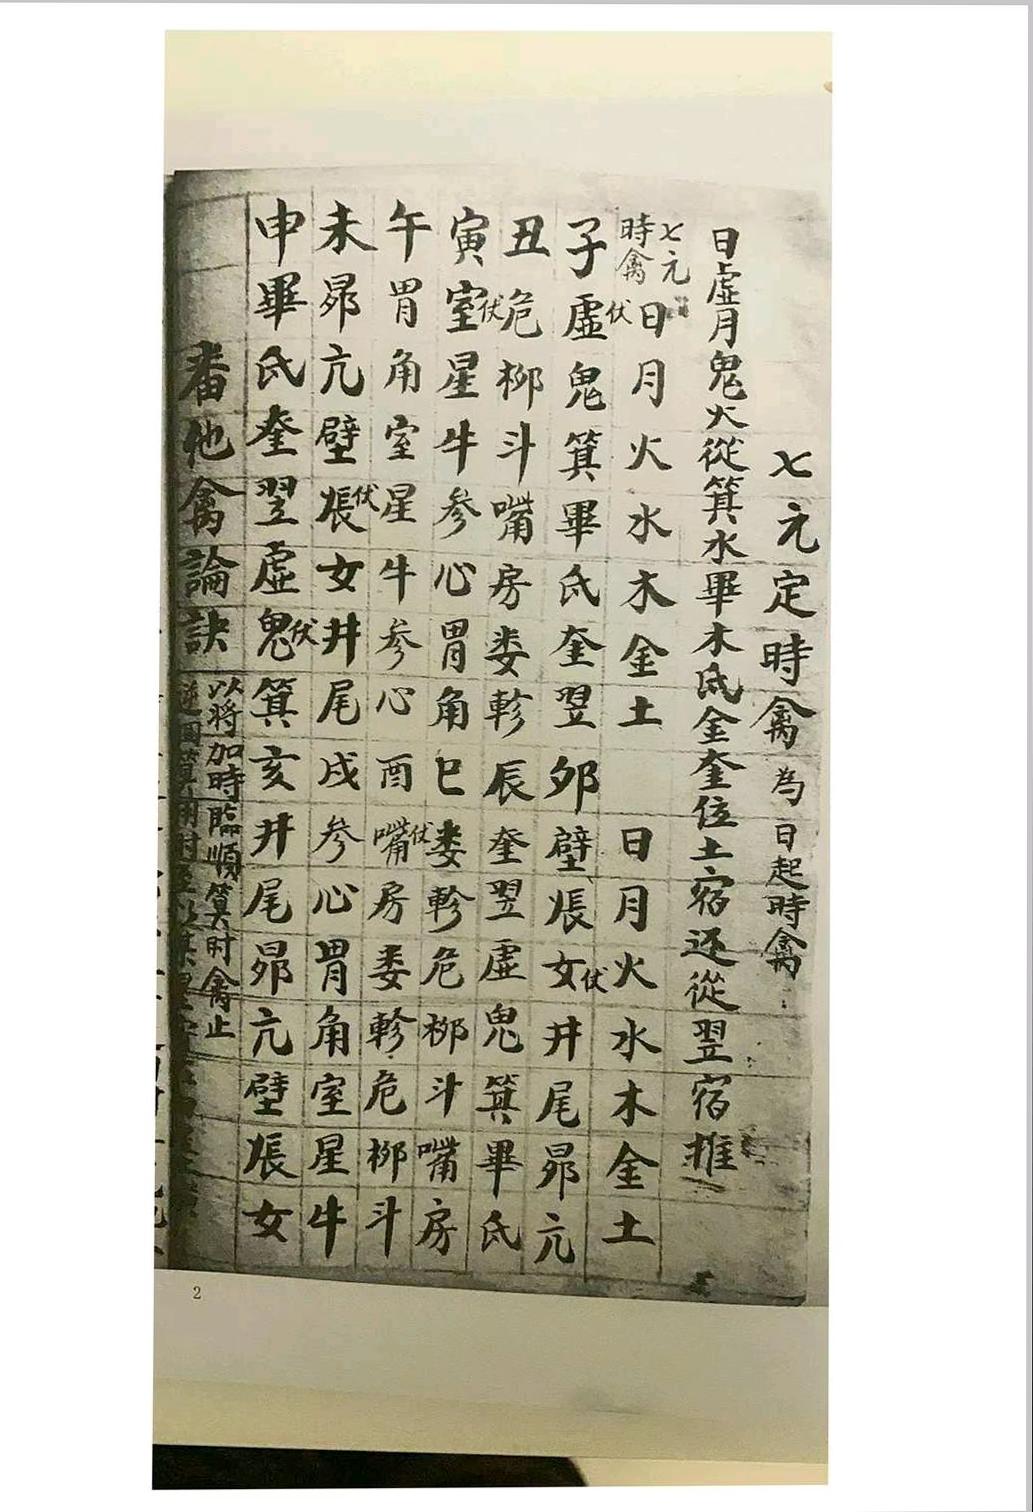 七元定時禽為日起時禽
日虛月鬼火從箕水畢木氐金奎位土宿还從翌宿推
七元時禽日月火水木金土 日月火水木金土
子虛伏鬼箕畢氐奎翌卯壁張女伏井尾昴亢
丑危柳斗嘴房娄軫辰奎翌虛鬼箕畢氐
寅室伏星牛参心胃角巳娄軫危柳斗嘴房
午胃角室星牛参心酉嘴伏房娄軫危柳斗
未昴亢壁張伏女井尾戌参心胃角室星牛
申畢氐奎翌虛鬼伏箕亥井尾昴亢壁張女
番他禽論訣以将加時臨順算时禽止
2